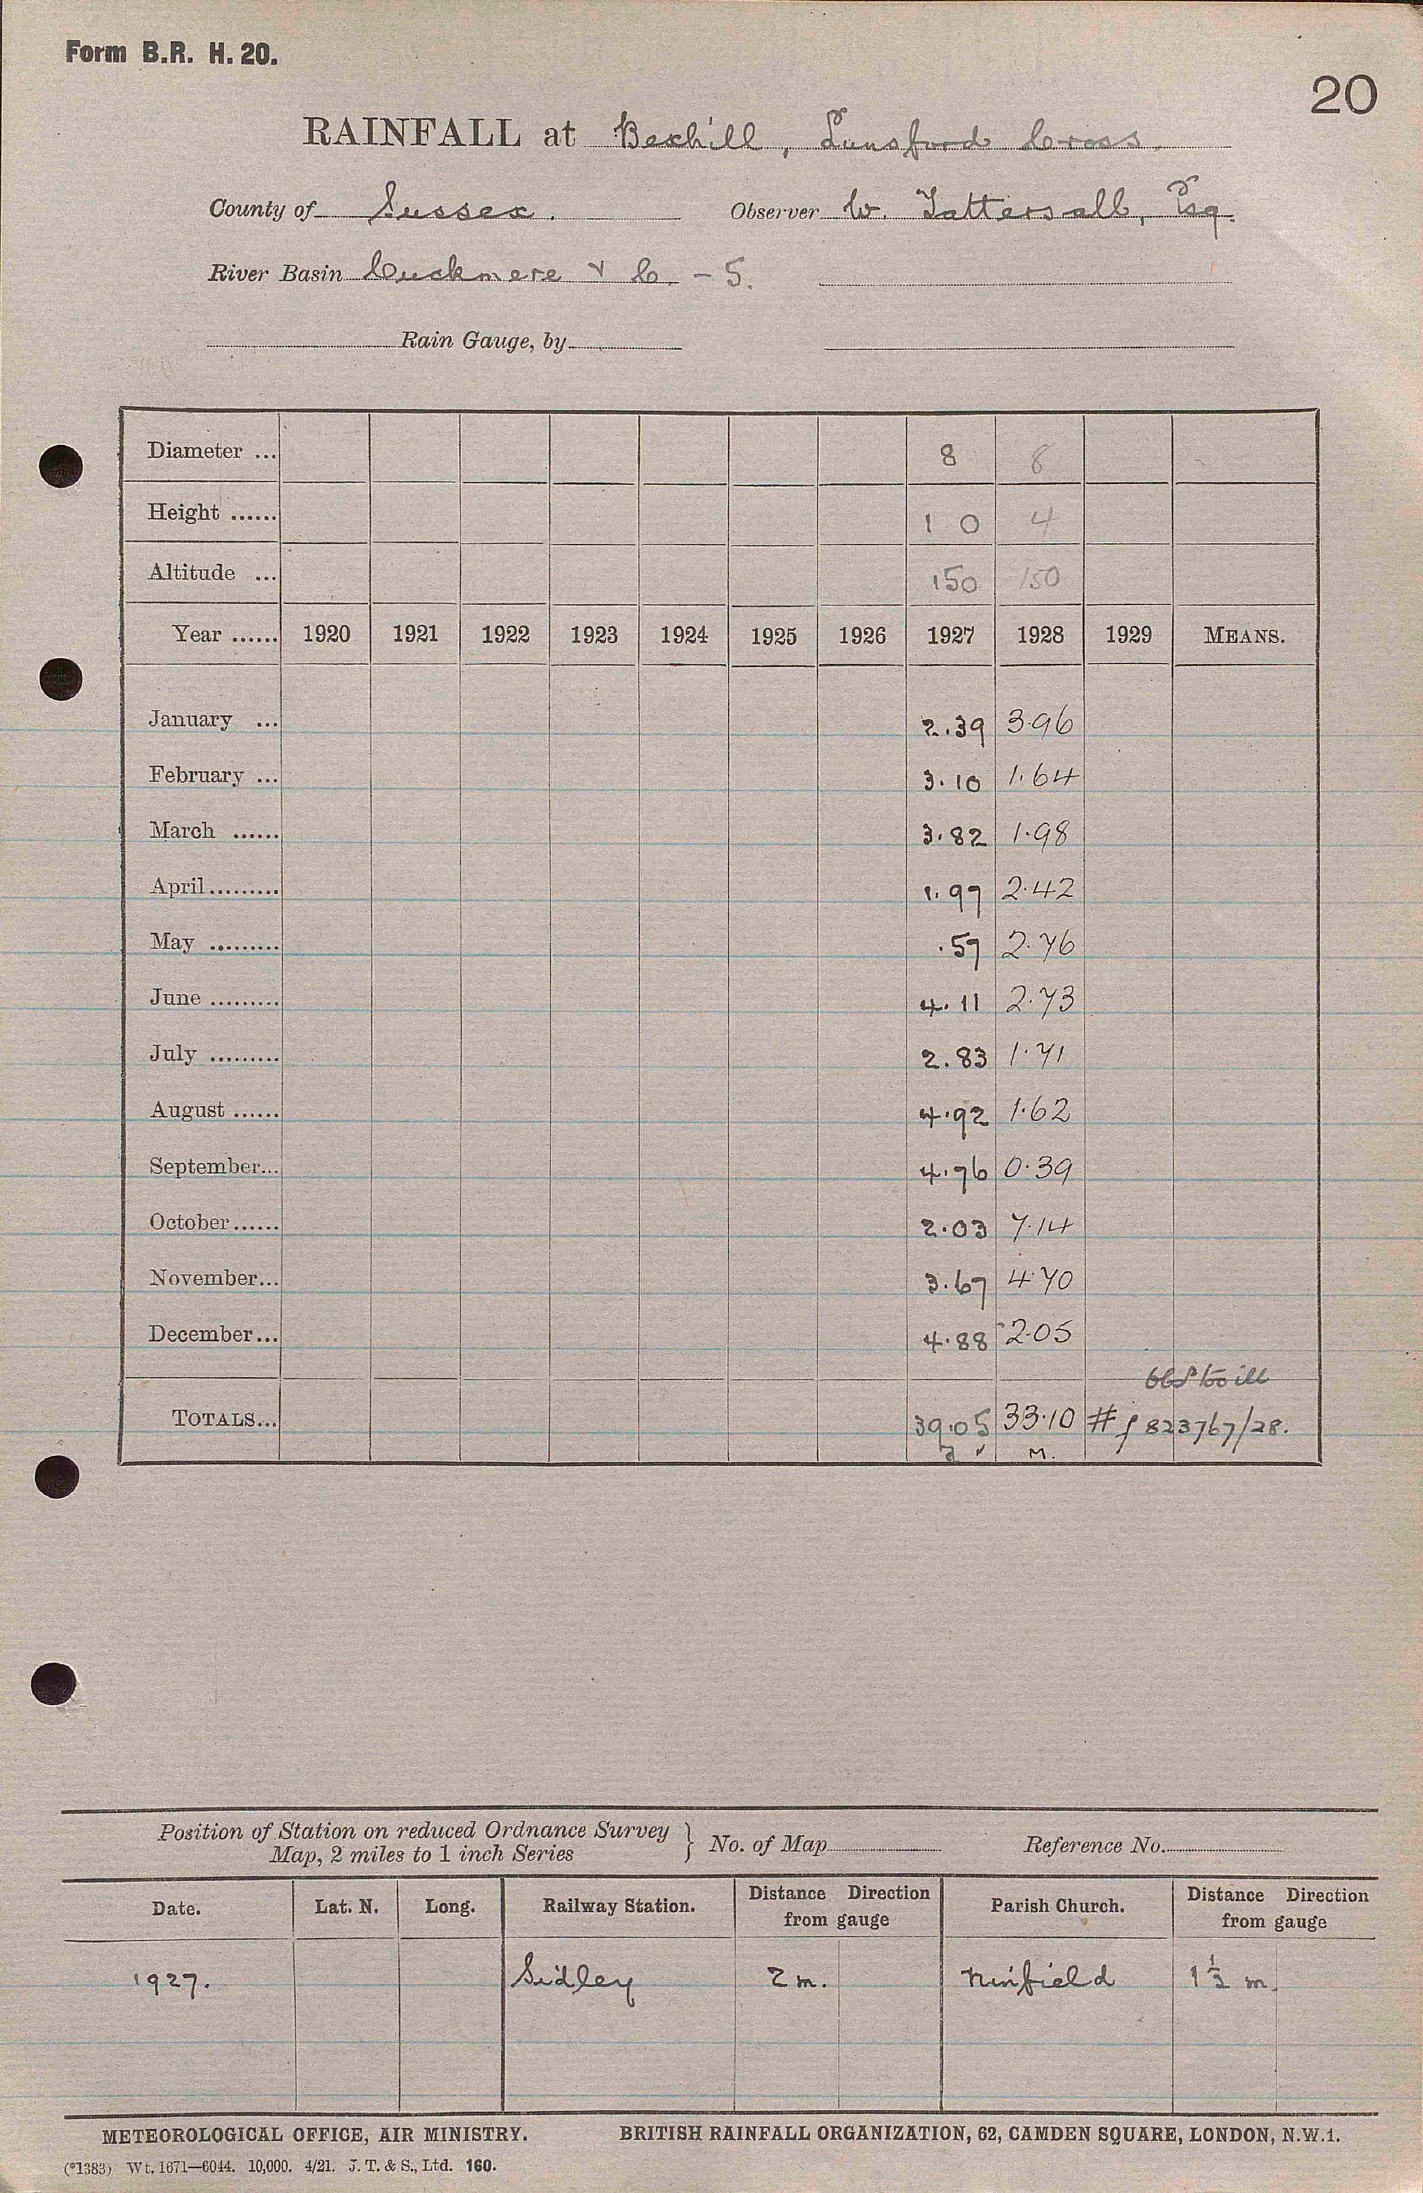 Form B.R. H. 20.
20
RAINFALL at Bexhill, Lunsford Cross.
County of Sussex. Observer W. Tattersall, Esq.
River Basin Cuckmere & C. - 5.
Rain Gauge, by
Diameter ... 8 8
Height ...... 1 0 4
Altitude ... 150 150
Year ...... 1920 1921 1922 1923 1924 1925 1926 1927 1928 1929 MEANS.
January ... 2.39 3.96
February ... 3.10 1.64
March ...... 3.82 1.98
April......... 1.97 2.42
May ......... .57 2.76
June ......... 4.11 2.73
July ......... 2.83 1.71
August ...... 4.92 1.62
September... 4.76 0.39
October...... 2.03 7.14
November... 3.67 4.70
December... 4.88 2.05
obs too ill
TOTALS... 39.05 33.10 # f 823767/28.
M.
Position of Station on reduced Ordnance Survey
Map, 2 miles to 1 inch Series } No. of Map Reference No.
Date. Lat. N. Long. Railway Station. Distance Direction from gauge Parish Church. Distance Direction from gauge
1927. Sidley 2 m. Ninfield 1½ m.
METEOROLOGICAL OFFICE, AIR MINISTRY. BRITISH RAINFALL ORGANIZATION, 62, CAMDEN SQUARE, LONDON, N.W.1.
(*1383) Wt. 1671—6044. 10,000. 4/21. J. T. & S., Ltd. 160.